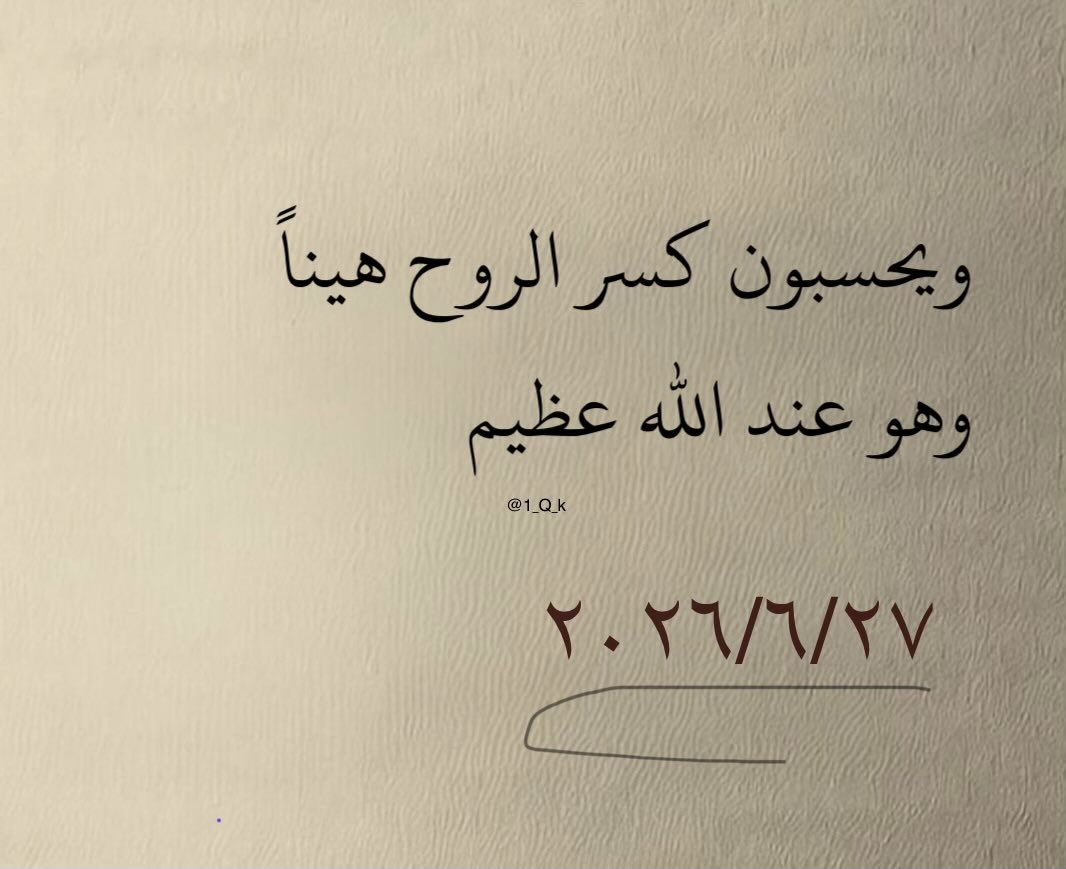 ويحسبون كسر الروح هيناً
وهو عند الله عظيم
@1_Q_k
٢٠٢٦/٦/٢٧